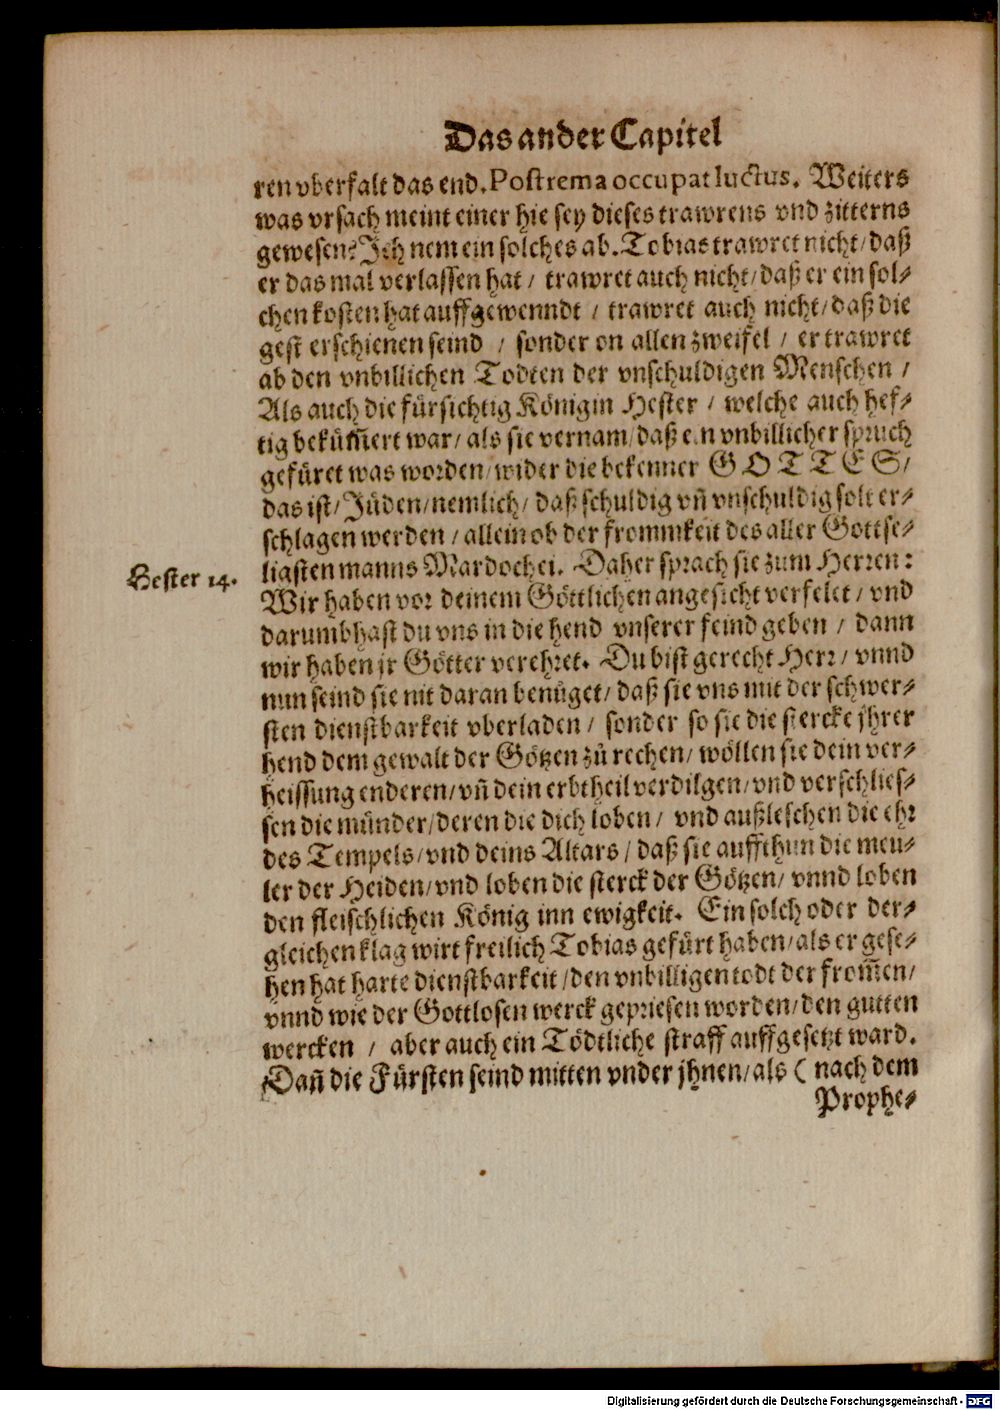 Das ander Capitel
ren vberfalt das end. Postrema occupat luctus. Weiters
was vrsach meint einer hie sey dieses trawrens vnd zitterns
gewesen? Ich nem ein solches ab. Tobias trawret nicht/ daß
er das mal verlassen hat / trawret auch nicht/ daß er ein sol-
chen kosten hat auffgewenndt / trawret auch nicht/ daß die
gest erschienen seind / sonder on allen zweifel / er trawret
ab den vnbillichen Todten der vnschuldigen Menschen /
Als auch die fürsichtig Königin Hester / welche auch hef-
tig beküm̃ert war/ als sie vernam/ daß ein vnbillicher spruch
gefüret was worden/ wider die bekenner G O T T E S/
das ist/ Jüden/ nemlich/ daß schuldig vñ vnschuldig solt er-
schlagen werden / allein ob der frommkeit des aller Gottse-
ligsten manns Mardochei. Daher sprach sie zum Herren:
Hester 14.
Wir haben vor deinem Göttlichen angesicht verfelet / vnd
darumb hast du vns in die hend vnserer feind geben / dann
wir haben jr Götter verehret. Du bist gerecht Herr/ vnnd
nun seind sie nit daran benüget/ daß sie vns mit der schwer-
sten dienstbarkeit vberladen / sonder so sie die stercke jhrer
hend dem gewalt der Götzen zů rechen/ wöllen sie dein ver-
heissung enderen/ vñ dein erbtheil verdilgen/ vnd verschlies-
sen die münder/ deren die dich loben / vnd außleschen die ehr
des Tempels/ vnd deins Altars / daß sie auffthun die meu-
ler der Heiden/ vnd loben die sterck der Götzen/ vnnd loben
den fleischlichen König inn ewigkeit. Ein solch oder der-
gleichen klag wirt freilich Tobias gefürt haben/ als er gese-
hen hat harte dienstbarkeit / den vnbilligen todt der from̃en/
vnnd wie der Gottlosen werck gepriesen worden/ den gutten
wercken / aber auch ein Tödtliche straff auffgesetzt ward.
Dañ die Fürsten seind mitten vnder jhnen/ als ( nach dem
Prophe-
Digitalisierung gefördert durch die Deutsche Forschungsgemeinschaft - DFG